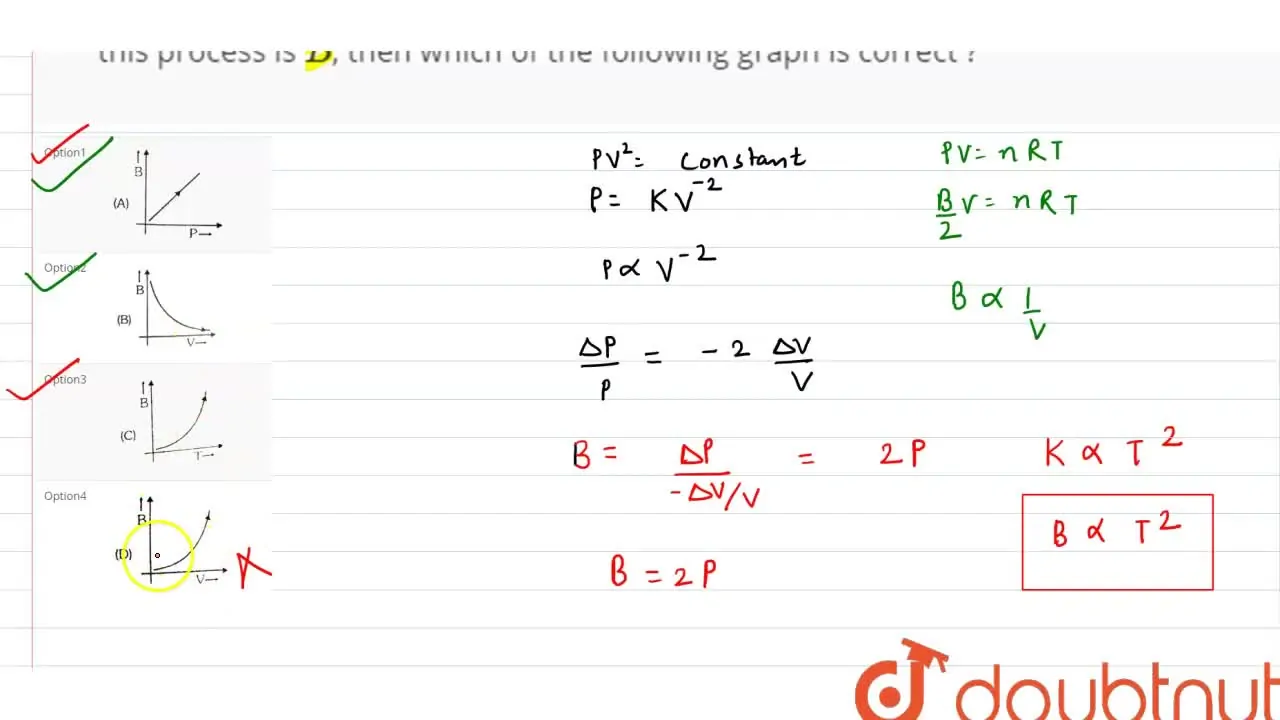 this process is B, then which of the following graph is correct ?
Option1
B
(A)
P→
Option2
B
(B)
V→
Option3
B
(C)
T→
Option4
B
(D)
V→
PV² = Constant
P = KV⁻²
P ∝ V⁻²
ΔP/P = -2 ΔV/V
B = ΔP/-ΔV/V = 2P
B = 2P
PV = nRT
B/2 V = nRT
B ∝ 1/V
K ∝ T²
B ∝ T²
doubtnut